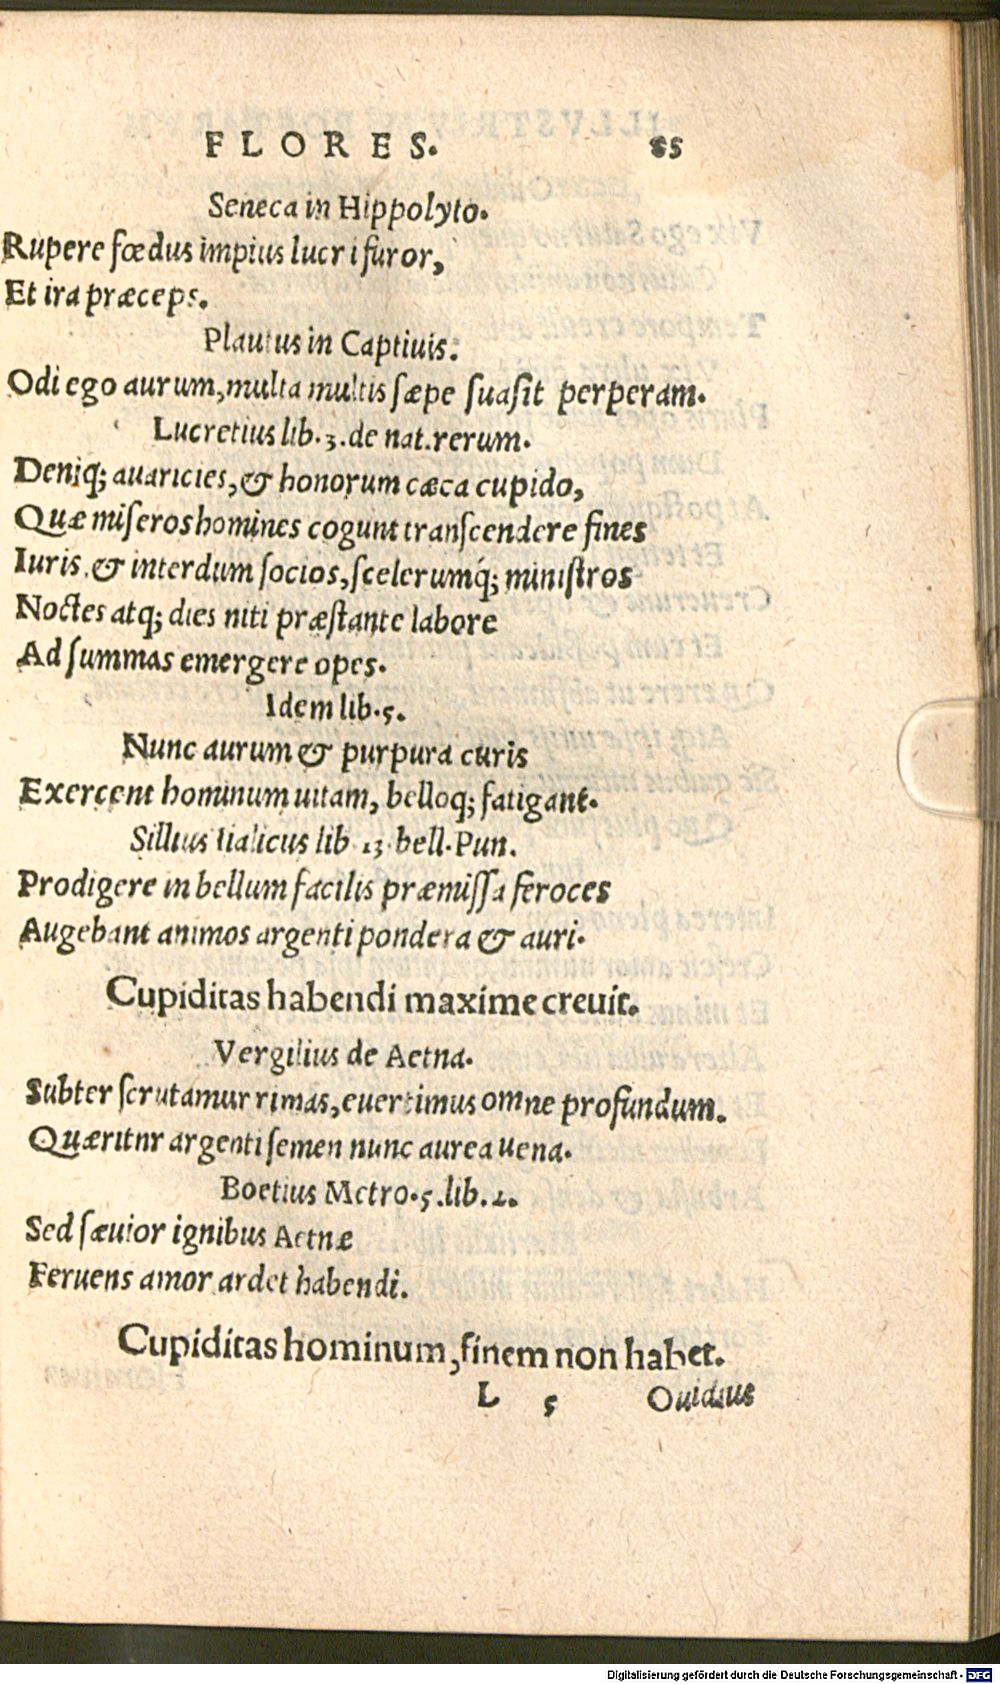 FLORES. 85
Seneca in Hippolyto.
Rupere fœdus impius lucri furor,
Et ira præceps.
Plautus in Captiuis.
Odi ego aurum, multa multis sæpe suasit perperam.
Lucretius lib. 3. de nat. rerum.
Deniq; auaricies, & honorum cæca cupido,
Quæ miseros homines cogunt transcendere fines
Iuris, & interdum socios, scelerumq́; ministros
Noctes atq; dies niti præstante labore
Ad summas emergere opes.
Idem lib. 5.
Nunc aurum & purpura curis
Exercent hominum uitam, belloq; fatigant.
Sillius Italicus lib. 13. bell. Pun.
Prodigere in bellum facilis præmissa feroces
Augebant animos argenti pondera & auri.
Cupiditas habendi maxime creuit.
Vergilius de Aetna.
Subter scrutamur rimas, euertimus omne profundum.
Quæritnr argenti semen nunc aurea uena.
Boetius Metro. 5. lib. 2.
Sed sæuior ignibus Aetnæ
Feruens amor ardet habendi.
Cupiditas hominum, finem non habet.
L 5 Ouidius
Digitalisierung gefördert durch die Deutsche Forschungsgemeinschaft - DFG